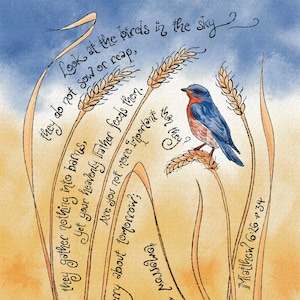 Look at the birds in the sky
they do not sow or reap,
they gather nothing into barns.
yet your heavenly Father feeds them.
Are you not more important than they
rry about tomorrow;
Matthew 6:26 & 34